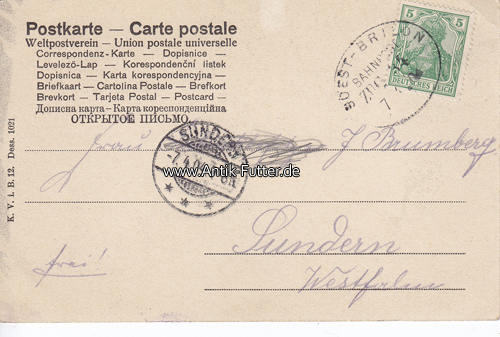 Postkarte — Carte postale
Weltpostverein — Union postale universelle
Correspondenz-Karte — Dopisnice —
Levelező-Lap — Korespondenční listek
Dopisnica — Karta korespondencyjna —
Briefkaart — Cartolina Postale — Brefkort
Brevkort — Tarjeta Postal — Postcard —
Дописна карта — Карта кореспонденційна
ОТКРЫТОЕ ПИСЬМО.
5 5
DEUTSCHES REICH
SOEST-BRILON
BAHNPOST
ZUG
7
SUNDERN
-7.4.0
www.Antik-Futter.de
Frau J Brumberg
Sundern
Westfalen
frei!
K. V. i. B. 12. Dess. 1021